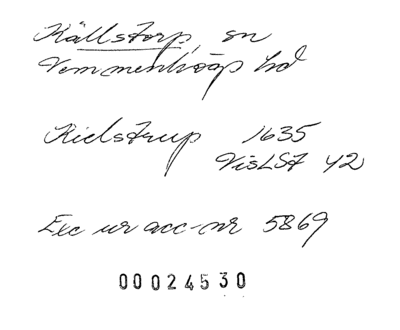 Källstorp, sn
Vemmenhögs hd
Kielstrup 1635
VisLSt 42
Exc ur acc-nr 5869
00024530